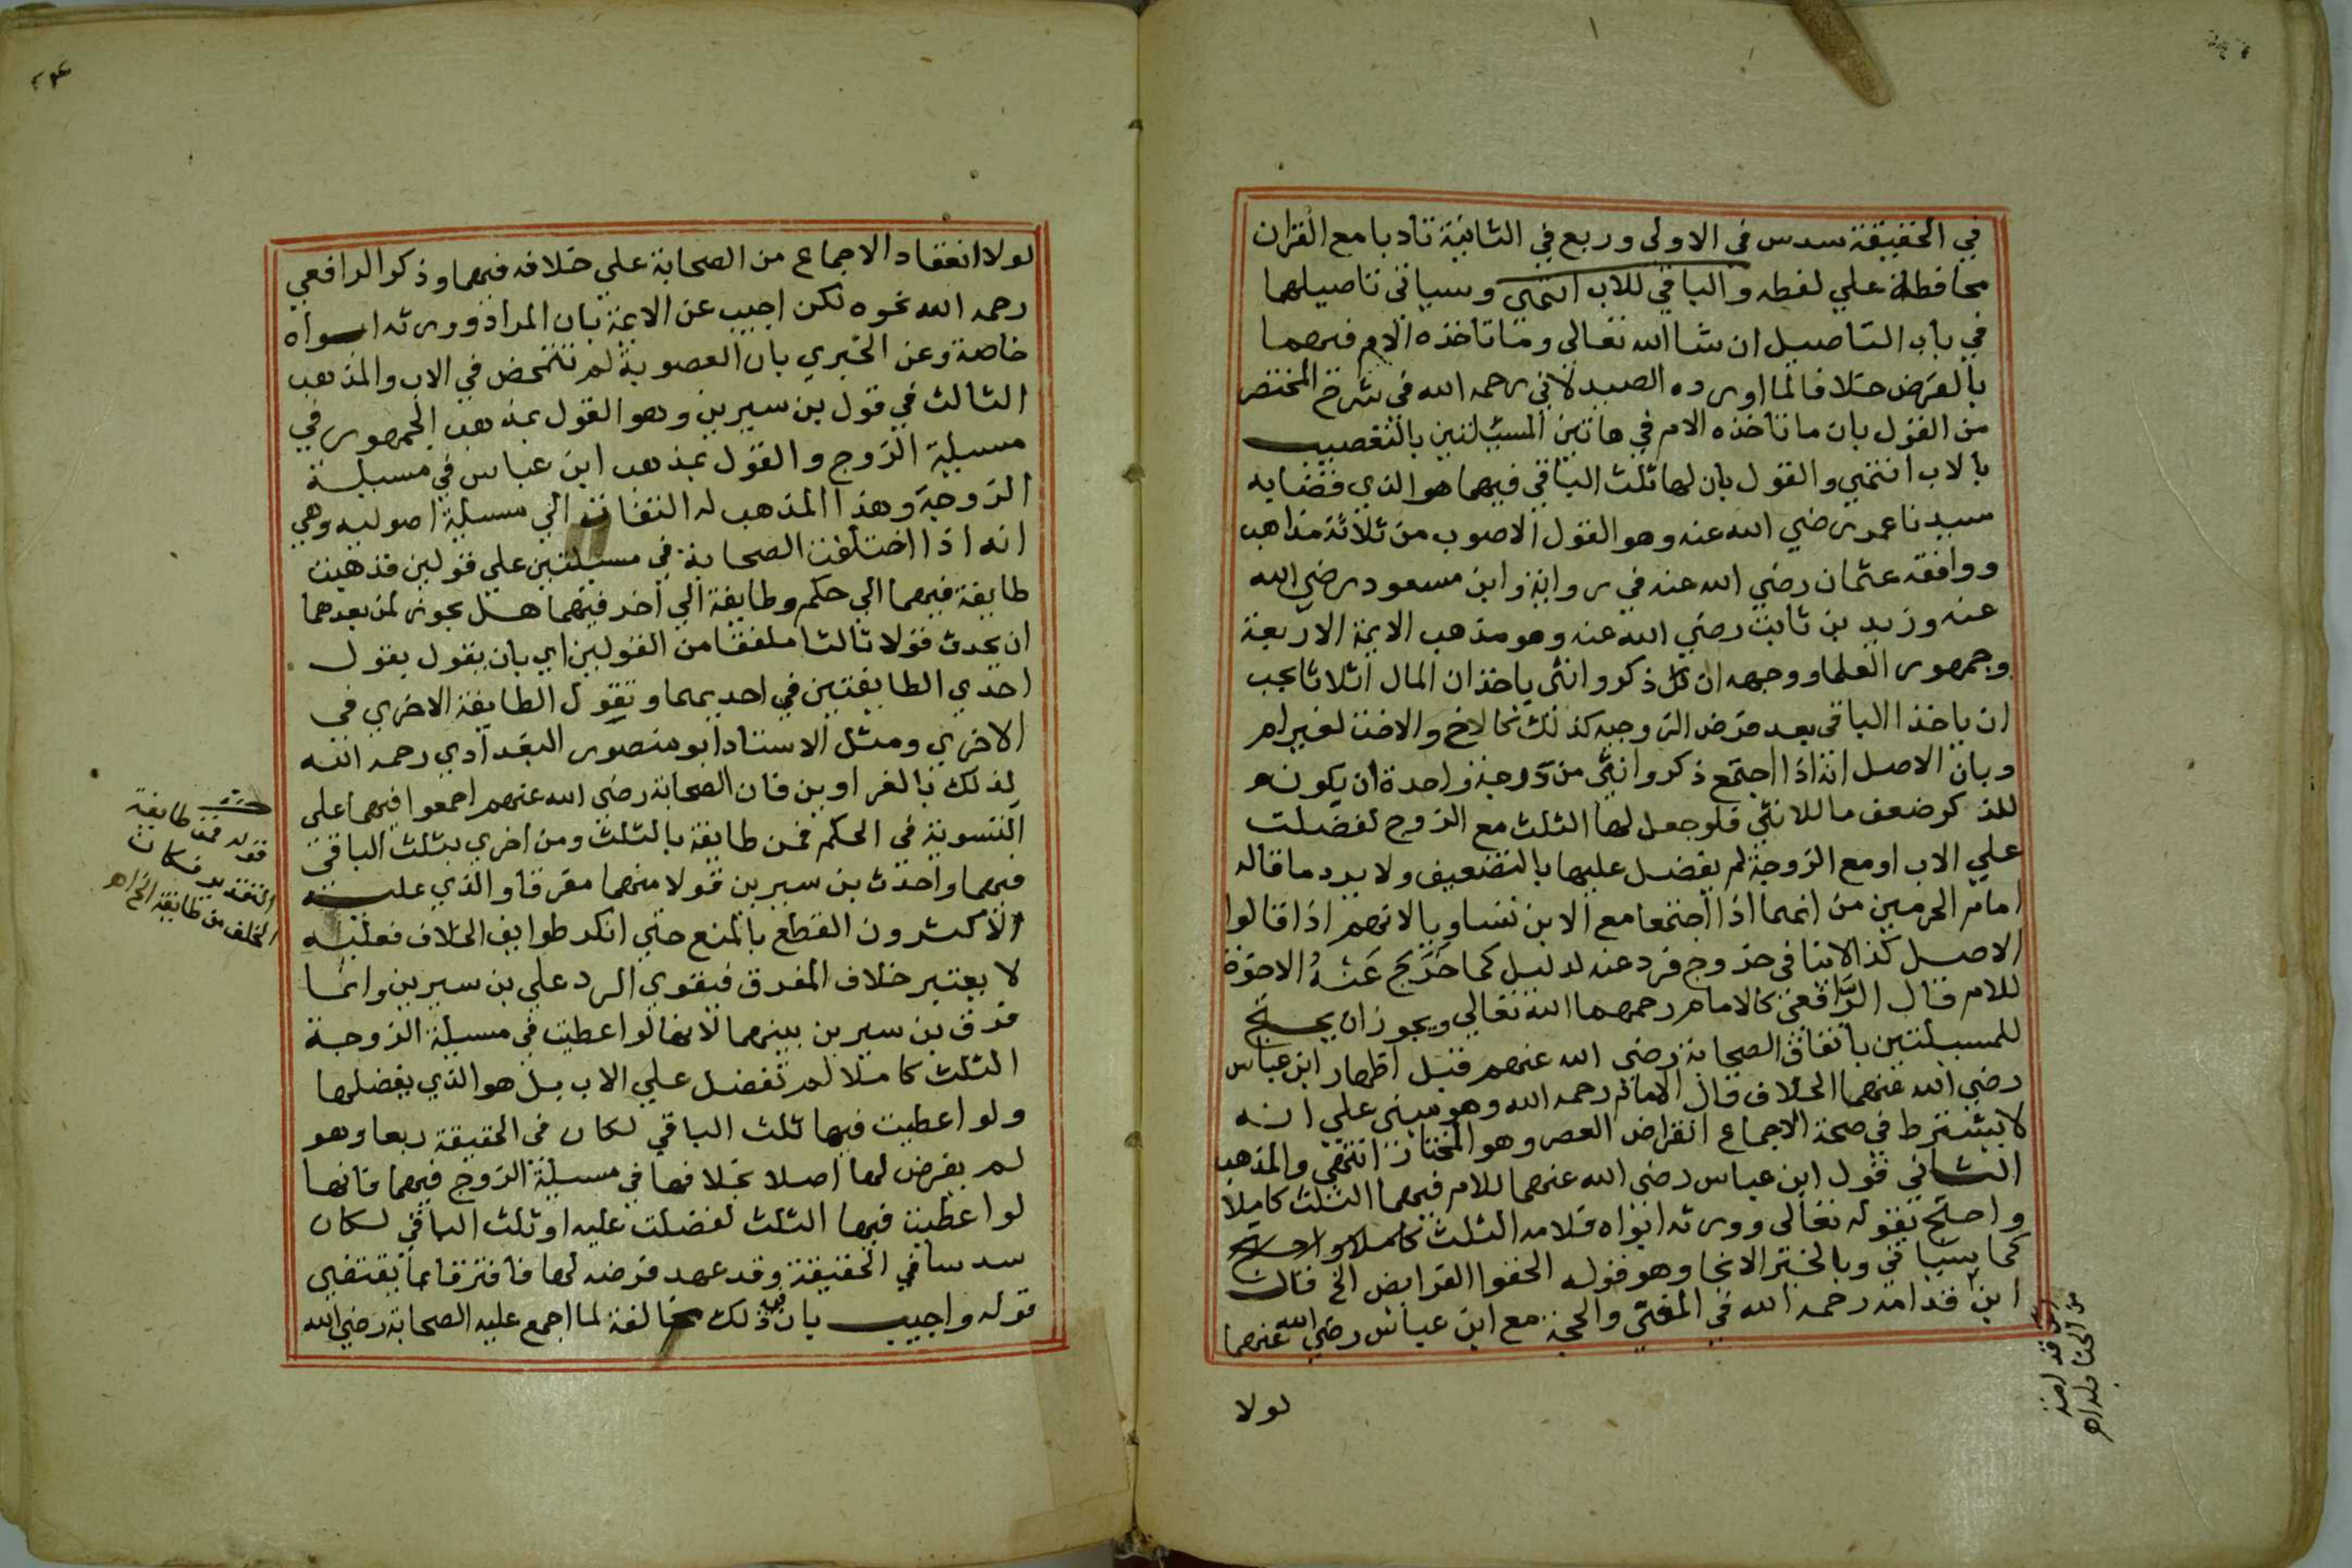 في الحقيقة سدس في الاولى وربع في الثانية تادبا مع القران
محافظة علي لفظه والباقي للاب انتهي وسياتي تاصيلها
في باب التاصيل ان شا الله تعالى وما تاخذه الام فيهما
بالفرض خلافا لما اورده الصيدلاني رحمه الله في شرح المختصر
من القول بان ما تاخذه الام في هاتين المسئلتين بالتعصيب
بالاب انتهي والقول بان لها ثلث الباقي فيهما هو الذي قضا به
سيدنا عمر رضي الله عنه وهو القول الاصوب من ثلاثة مذاهب
ووافقه عثمان رضي الله عنه في رواية وابن مسعود رضي الله
عنه وزيد بن ثابت رضي الله عنه وهو مذهب الايمة الاربعة
وجمهور العلما ووجهه ان كل ذكر وانثي ياخذان المال اثلاثا يجب
ان ياخذا الباقي بعد فرض الزوجيه كذلك كالاخ والاخت لغير ام
وبان الاصل انه اذا اجتمع ذكر وانثي من درجة واحدة ان يكون
للذكر ضعف ما للانثي فلو جعل لها الثلث مع الزوج لفضلت
علي الاب او مع الزوجة لم يفضل عليها بالتضعيف ولا يرد ما قاله
امام الحرمين من انهما اذا اجتمعا مع الابن تساويا لانهم اذا قالوا
الاصل كذا لا ينافي خروج فرد عنه لدليل كما خرج عنه الاخوة
للام قال الرافعي كالامام رحمهما الله تعالي ويجوز ان يحتج
للمسيلتين باتفاق الصحابة رضي الله عنهم قبل اظهار ابن عباس
رضي الله عنهما الخلاف قال الامام رحمه الله وهو مبني علي انه
لا يشترط في صحة الاجماع انقراض العصر وهو المختار انتهي والمذهب
الثاني قول ابن عباس رضي الله عنهما للام فيهما الثلث كاملا
واحتج بقوله تعالى وورثه ابواه فلامه الثلث كاملا واحتج
كما سياتي وبالخبر الاتي وهو قوله الحقوا الفرايض الخ قال
ابن قدامه رحمه الله في المغني والحجة مع ابن عباس رضي الله عنهما
ابن قدامة
من الحنابله اه
لولا
لولا انعقاد الاجماع من الصحابة علي خلافه فيهما وذكر الرافعي
رحمه الله نحوه لكن اجيب عن الاية بان المراد وورثه ابواه
خاصة وعن الخبر بان العصوبة لم تتمحض في الاب والمذهب
الثالث في قول بن سيرين وهو القول بمذهب الجمهور في
مسيلة الزوج والقول بمذهب ابن عباس في مسيلة
الزوجة وهذا المذهب له التفات الي مسيلة اصوليه وهي
انه اذا اختلفت الصحابة في مسيلتين علي قولين فذهبت
طايفة فيهما الي حكم وطايفة الي اخر فيهما هل يجوز لمن بعدهما
ان يحدث قولا ثالثا ملفقا من القولين اي بان يقول بقول
احدي الطايفتين في احديهما وبقول الطايفة الاخري في
الاخري ومثل الاستاد ابو منصور البغدادي رحمه الله
لذلك بالغراوين فان الصحابة رضي الله عنهم اجمعوا فيهما علي
التسوية في الحكم فمن طايفة بالثلث ومن اخري بثلث الباقي
فيهما واحدث بن سيرين قولا منهما مفرقا والذي عليه
الاكثرون القطع بالمنع حتي انكر طوايف الخلاف فعليه
لا يعتبر خلاف المفرق فيقوي الرد علي بن سيرين وانما
فرق بن سيرين بينهما لانها لو اعطيت في مسيلة الزوجة
الثلث كاملا لم تفضل علي الاب بل هو الذي يفضلها
ولو اعطيت فيها ثلث الباقي لكان في الحقيقة ربعا وهو
لم يفرض لها اصلا بخلافها في مسيلة الزوج فيهما فانها
لو اعطيت فيها الثلث لفضلت عليه او ثلث الباقي لكان
سدسا في الحقيقة وقد عهد فرضه لها فافترقا بما يقتضي
قوله واجيب بان في ذلك مخالفة لما اجمع عليه الصحابة رضي الله
قوله فمن طايفة
التقدير فكان
الخلف من طايفة الخ اه